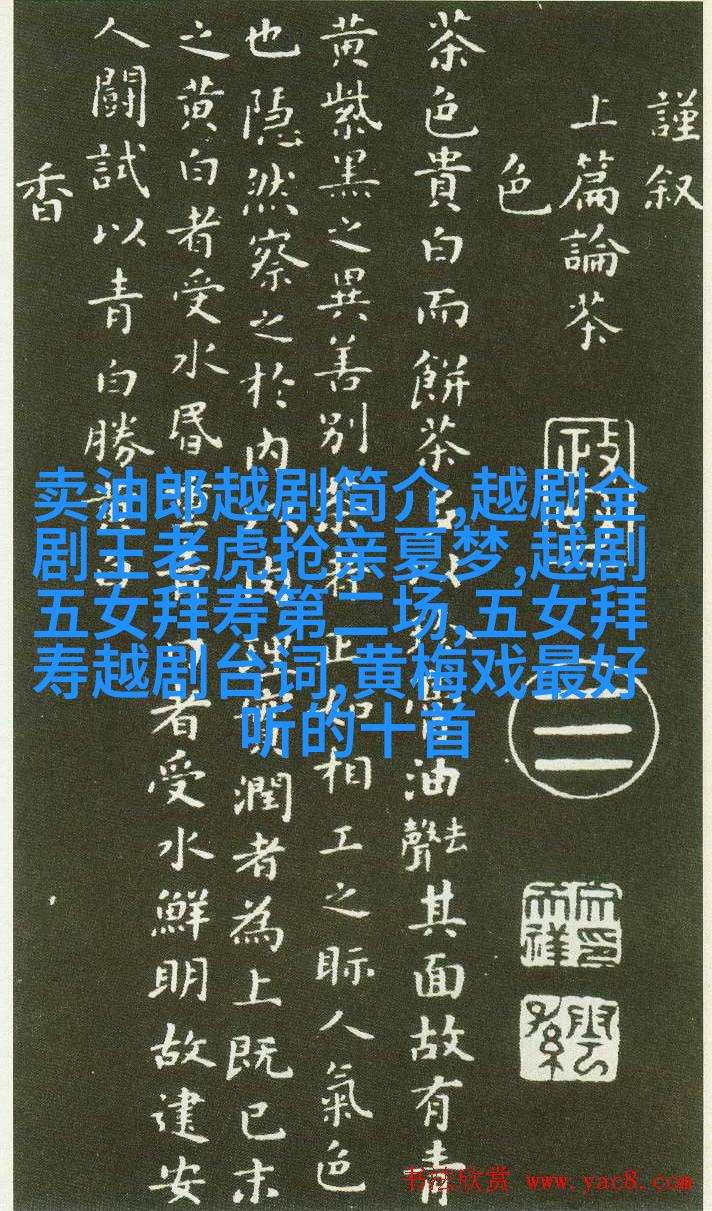 謹叙
上篇論茶
色
茶色貴白而餅茶油去聲其面故有青
黄紫黑之異善别茶者正如相工之眎人氣色
也隱然察之於内理實潤者為上既已末
之黄白者受水昬重青白者受水鮮明故建安
人鬭試以青白勝黄白
香
卖油郎越剧简介,越剧全
剧王老虎抢亲夏梦,越剧
五女拜寿第二场,五女拜
寿越剧台词,黄梅戏最好
听的十首
书法欣赏 www.yac8.com